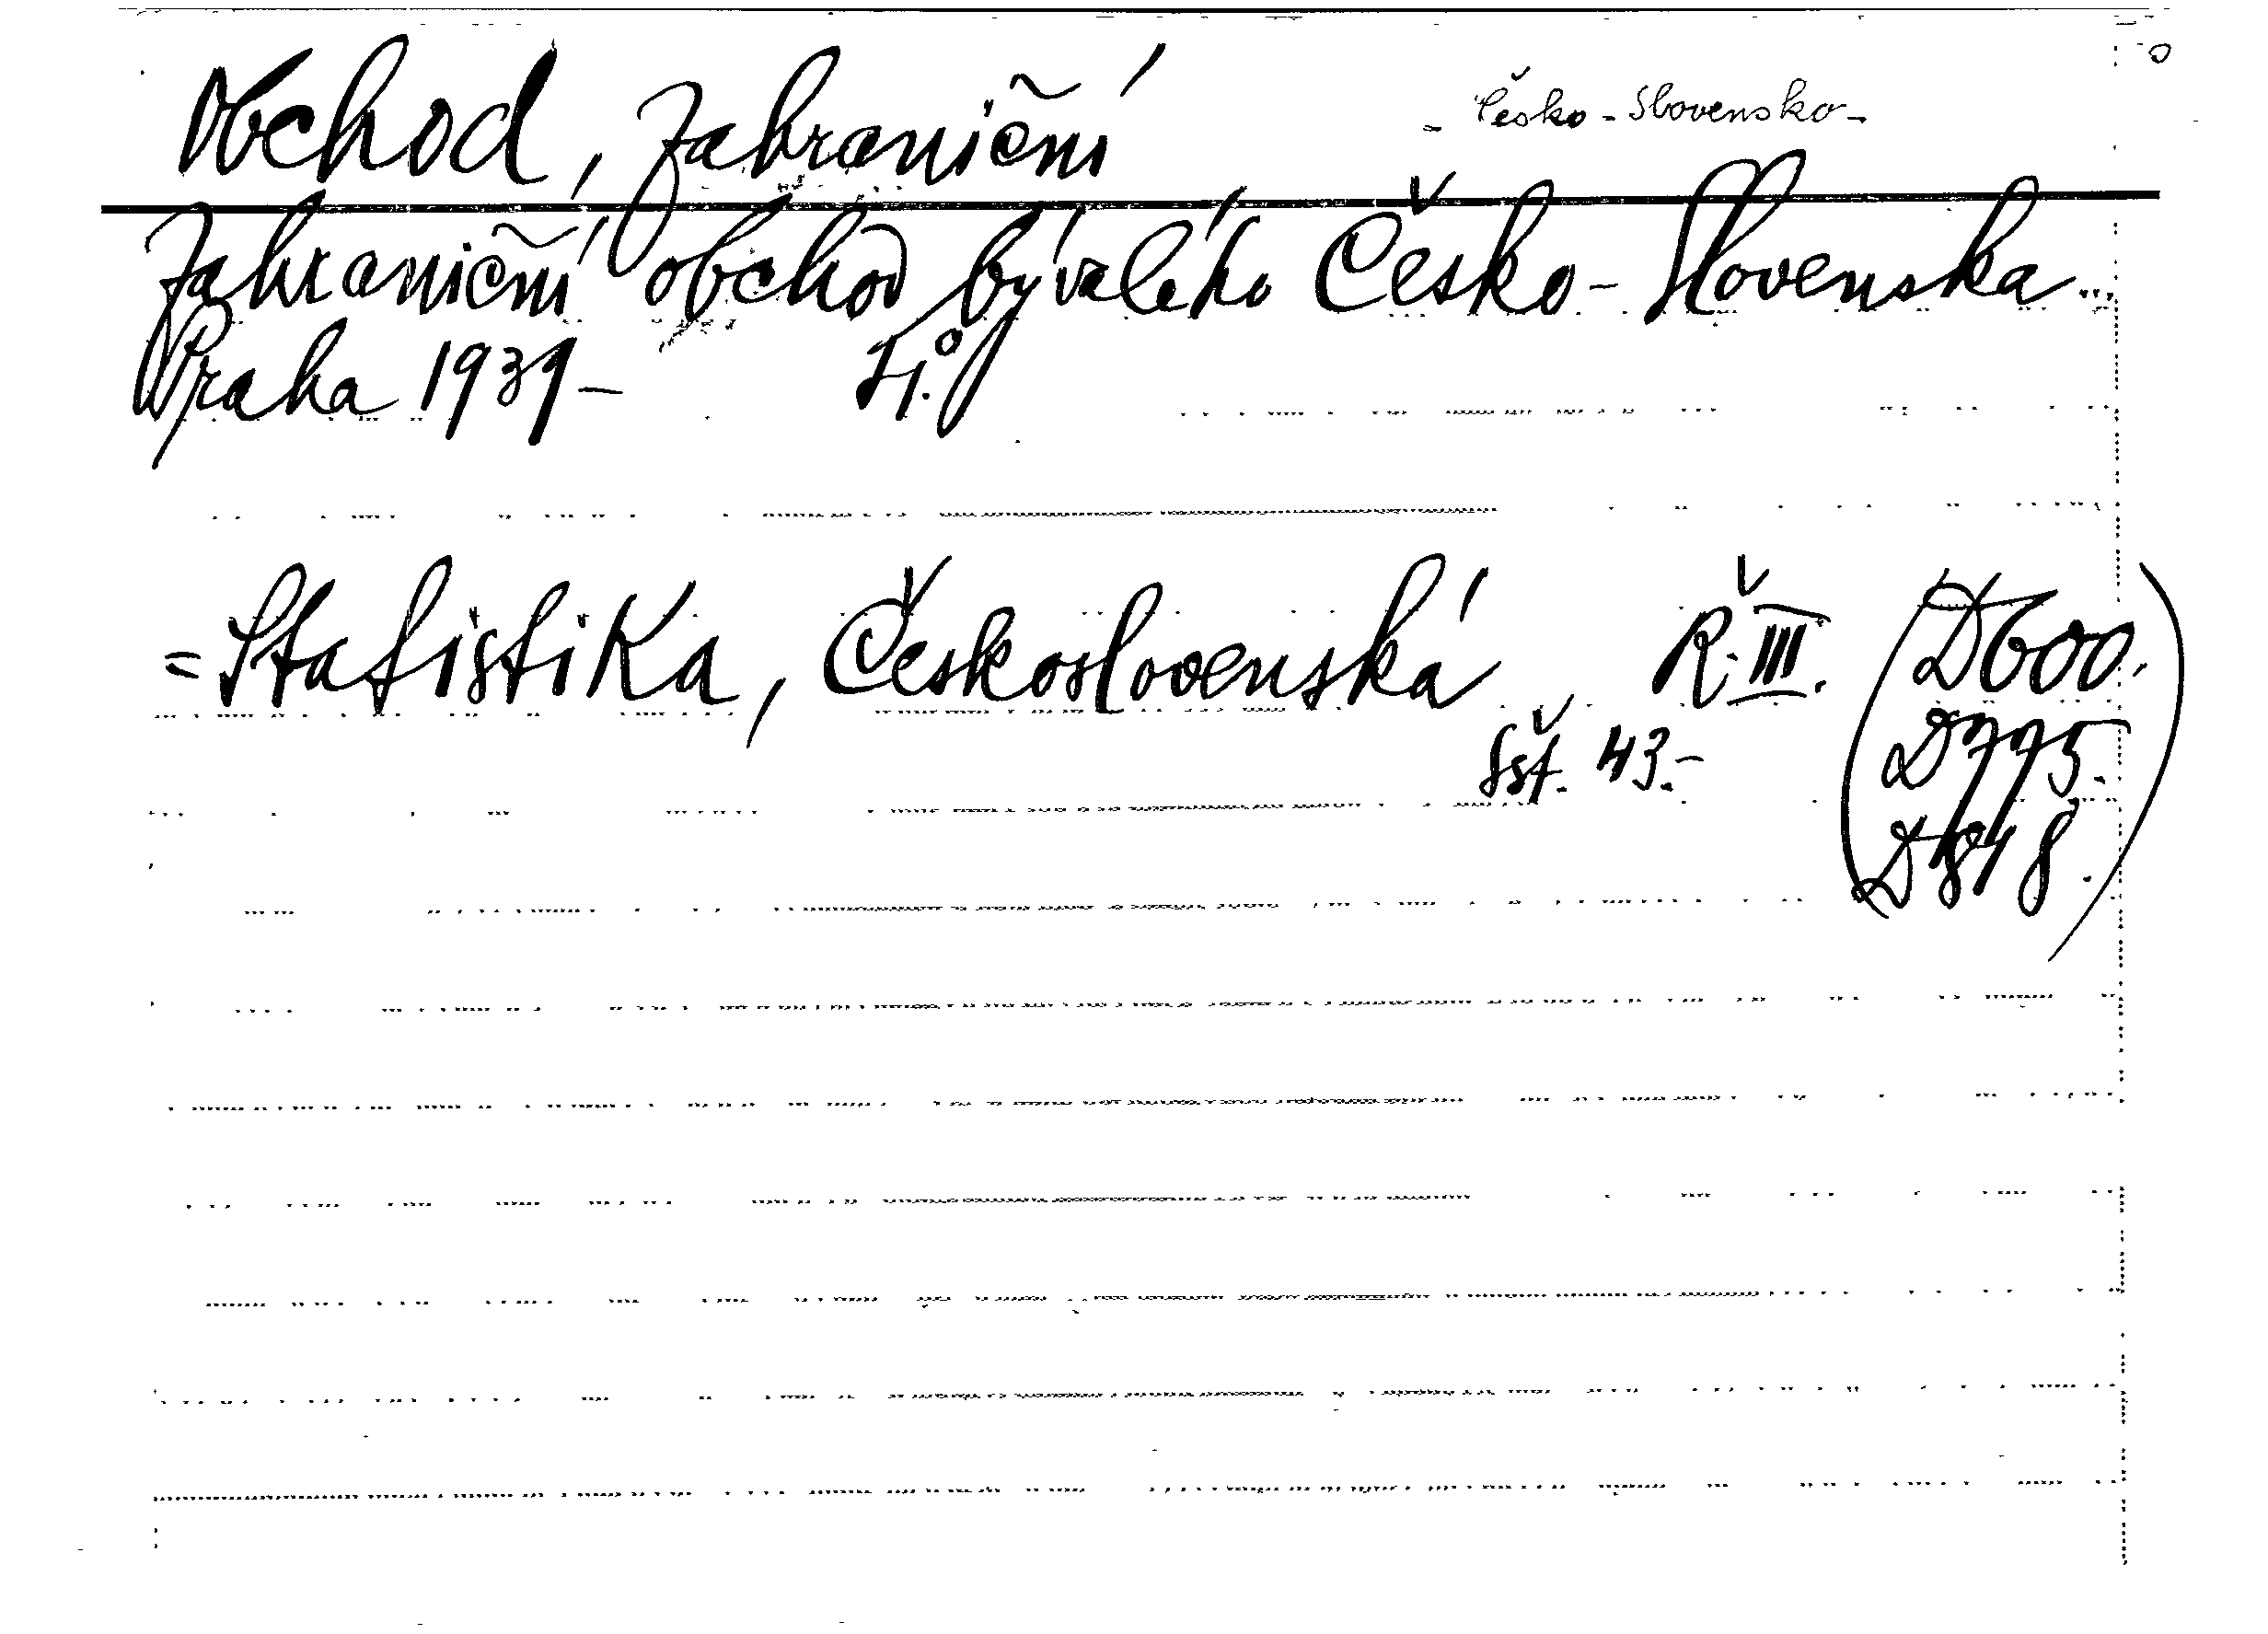 Obchod, zahraniční - Česko-Slovensko-
Zahraniční obchod bývalého Česko-Slovenska...
Praha 1939- 4°.
=Statistika, Československá Ř.III. (D600.
Sšt. 43.- D775.
D818.)